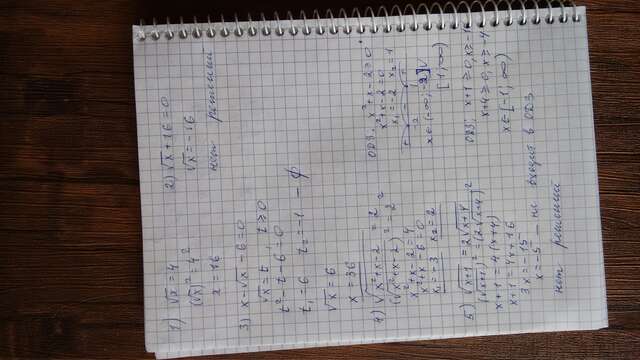 1) √x = 4
(√x)² = 4²
x = 16
2) √x + 16 = 0
√x = -16
нет решений
3) x - √x - 6 = 0
√x = t t ≥ 0
t² - t - 6 = 0
t₁ = 6 t₂ = -1 - ϕ
√x = 6
x = 36
4) √x²+x-2 = 2
(√x²+x-2)² = 2²
x²+x-2 = 4
x²+x-6 = 0
x₁ = -3 x₂ = 2
ОДЗ: x²+x-2 ≥ 0
x²+x-2 = 0
x₁ = -2 x₂ = 1
x ∈ (-∞; -2] ∪
[1; ∞)
5) √x+1 = 2√x+4
(√x+1)² = (2√x+4)²
x+1 = 4(x+4)
x+1 = 4x+16
3x = -15
x = -5 - не входит в ОДЗ
нет решений
ОДЗ: x+1 ≥ 0, x ≥ -1
x+4 ≥ 0, x ≥ -4
x ∈ [-1; ∞)